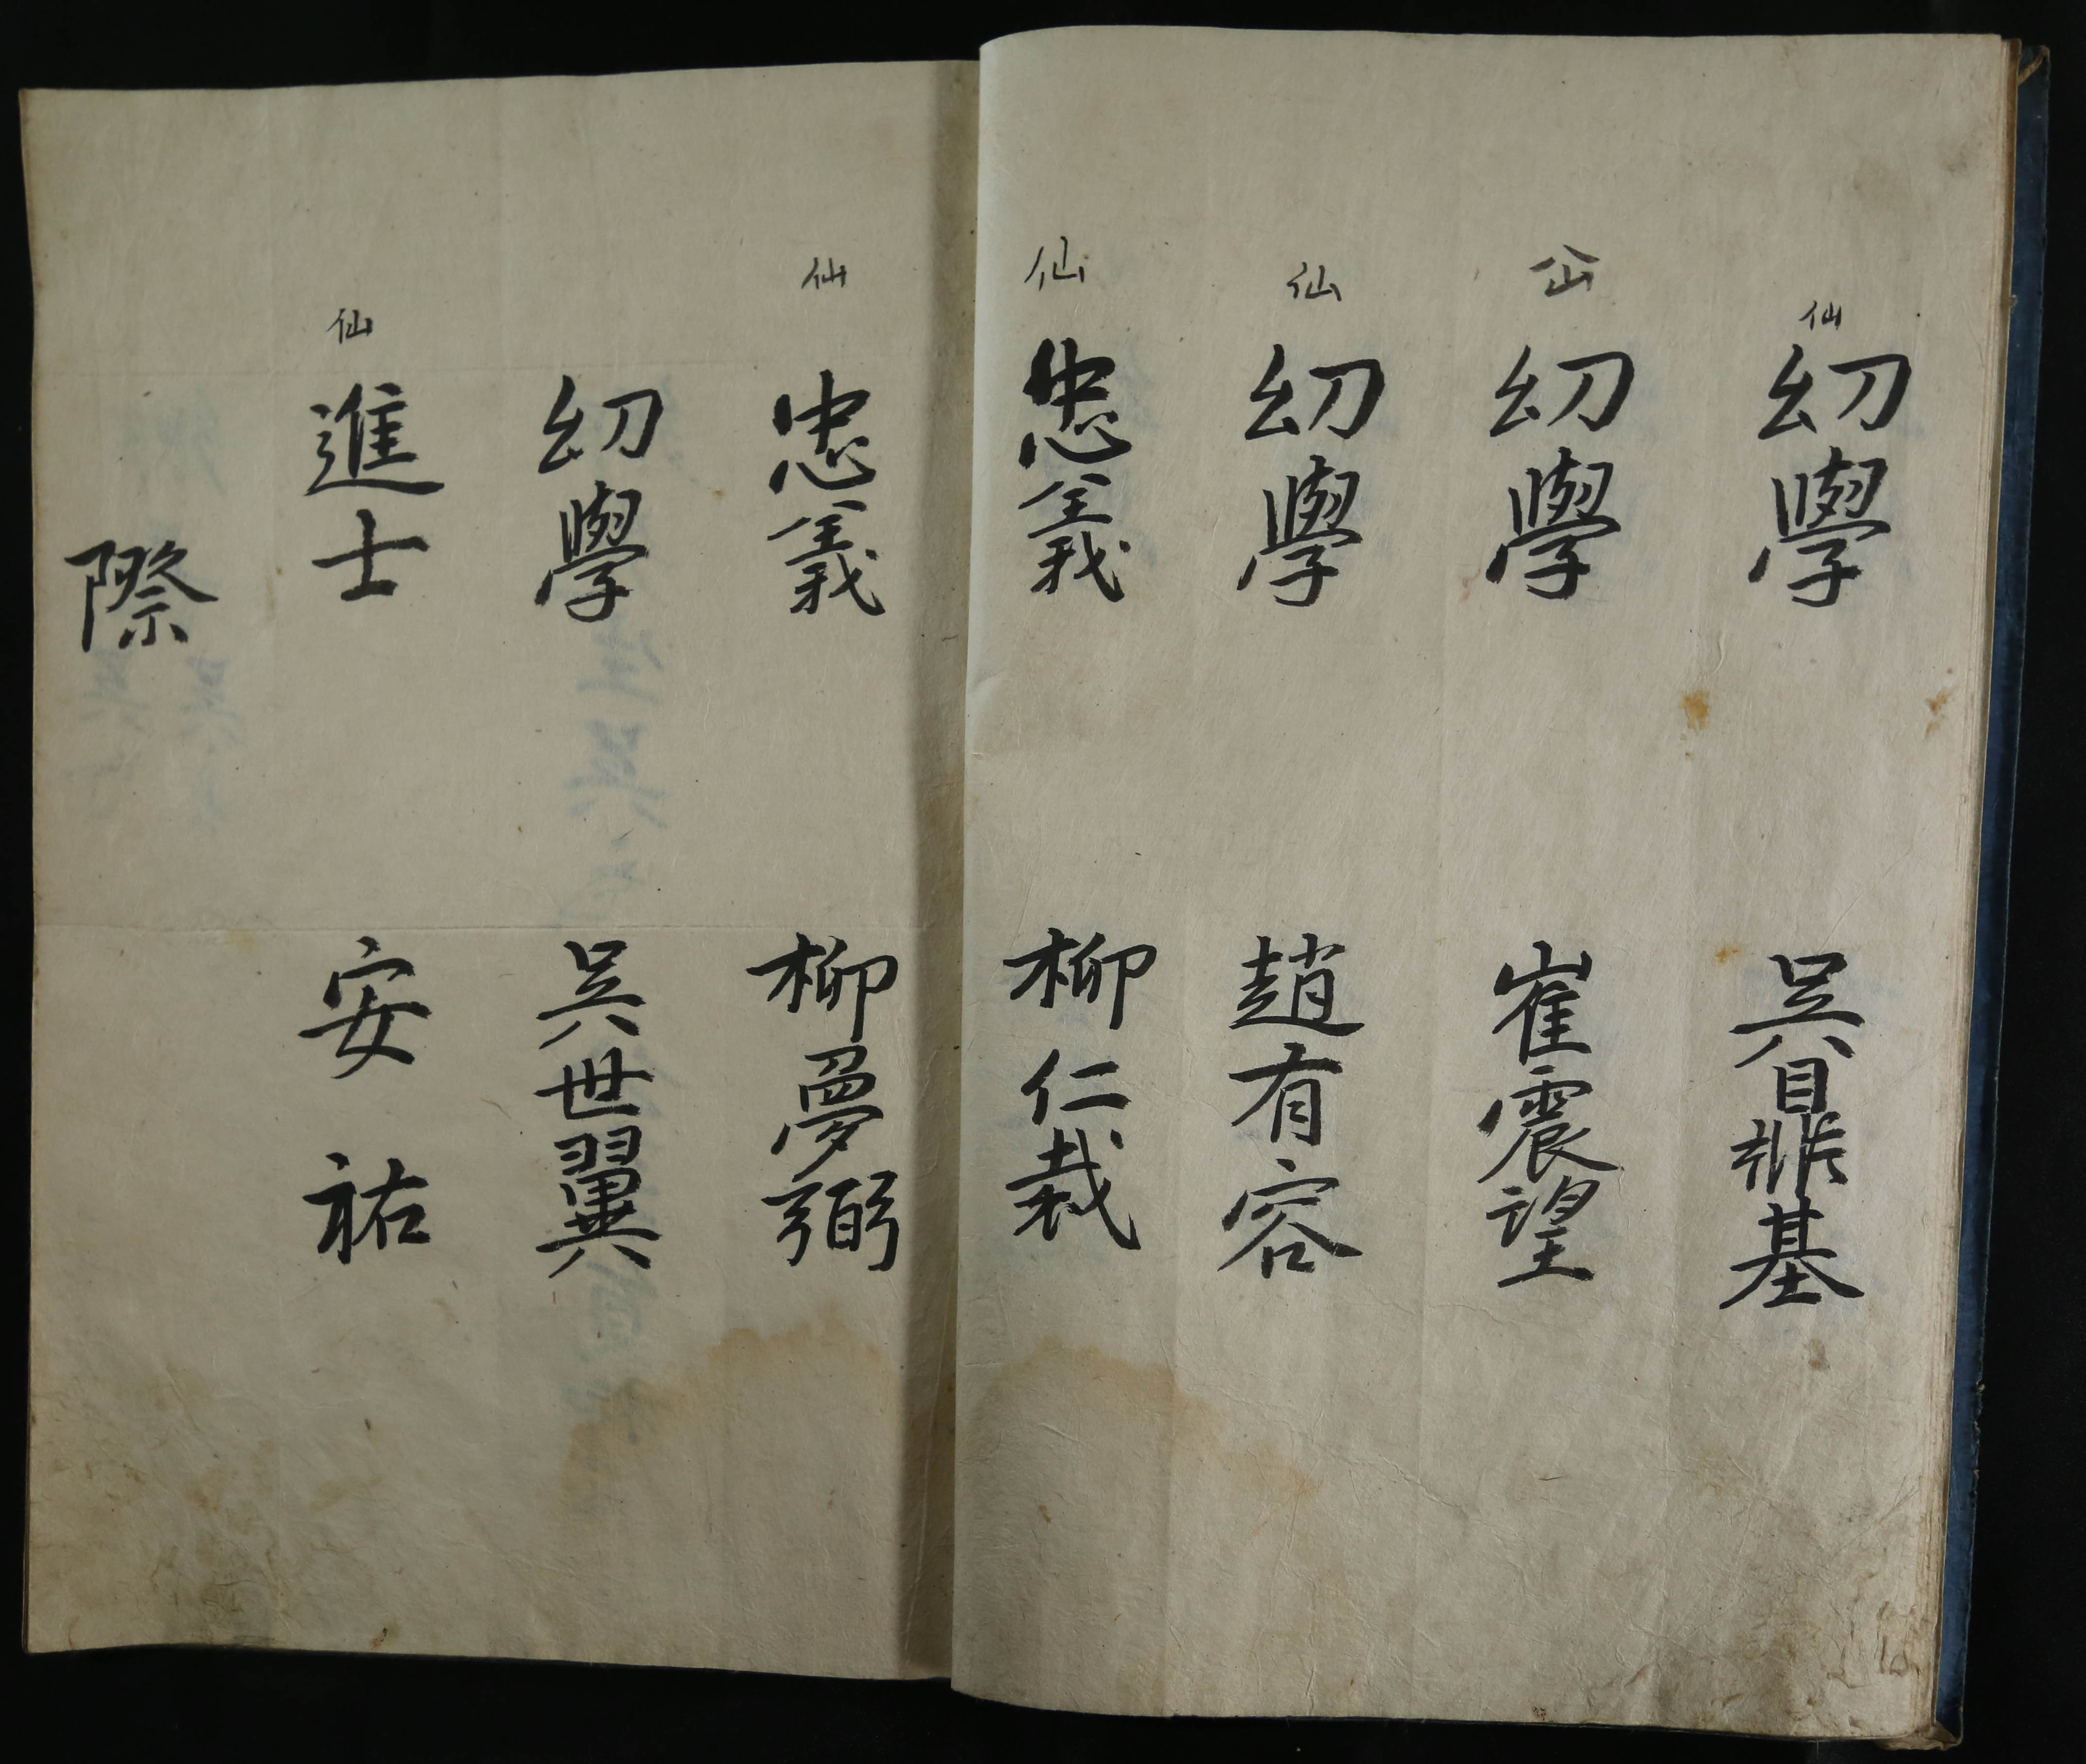 仙 幼學 吳基
仚 幼學 崔震望
仙 幼學 趙有容
仙 忠義 柳仁裁
仙 忠義 柳夢弼
幼學 吳世翼
仙 進士 安祐
際